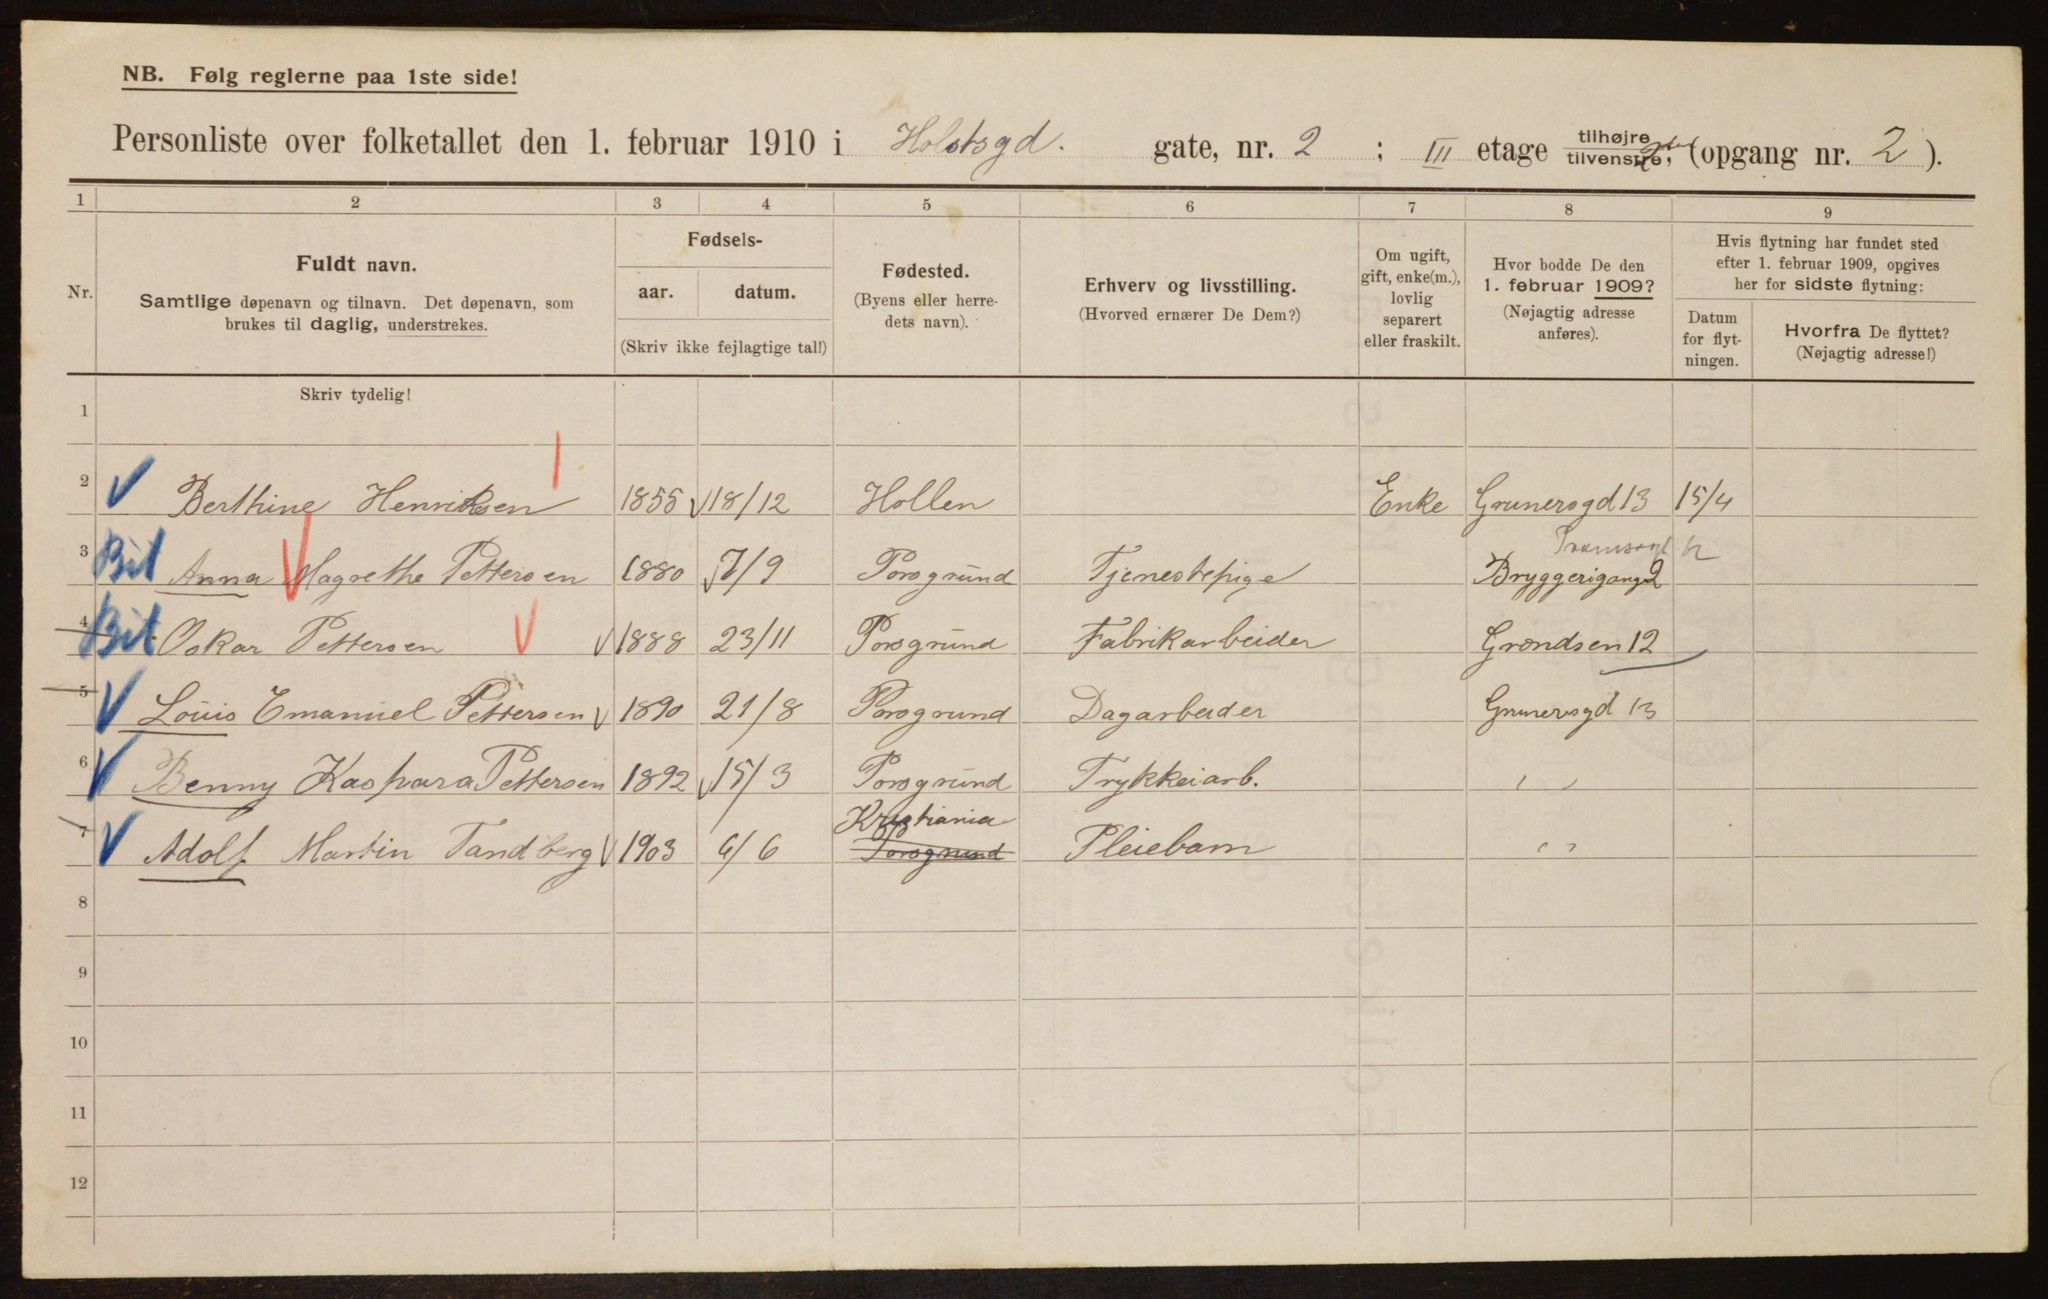 NB. Følg reglerne paa 1ste side!
Personliste over folketallet den 1. februar 1910 i Holstsgd. gate, nr. 2 ; III etage tilhøjre tilvenstre, (opgang nr. 2).
1 2 3 4 5 6 7 8 9
Nr.
Fuldt navn.
Samtlige døpenavn og tilnavn. Det døpenavn, som
brukes til daglig, understrekes.
Fødsels-
aar. datum.
(Skriv ikke fejlagtige tal!)
Fødested.
(Byens eller herre-
dets navn).
Erhverv og livsstilling.
(Hvorved ernærer De Dem?)
Om ugift,
gift, enke(m.),
lovlig
separert
eller fraskilt.
Hvor bodde De den
1. februar 1909?
(Nøjagtig adresse
anføres).
Hvis flytning har fundet sted
efter 1. februar 1909, opgives
her for sidste flytning:
Datum
for flyt-
ningen.
Hvorfra De flyttet?
(Nøjagtig adresse!)
Skriv tydelig!
1
2 Berthine Henriksen 1855 18/12 Hollen Enke Grunersgd 13 15/4
3 Bit Anna Magrethe Pettersen 1880 7/9 Porsgrund Tjenestepige Bryggerigang 2
4 Bit Oskar Pettersen 1888 23/11 Porsgrund Fabrikarbeider Grændsen 12
5 Louis Emanuel Pettersen 1890 21/8 Porsgrund Dagarbeider Grunersgd 13
6 Benny Kaspara Pettersen 1892 15/3 Porsgrund Trykkeiarb. " "
Kristiania
7 Adolf Martin Tandberg 1903 6/6 Porsgrund Pleiebarn " "
8
9
10
11
12